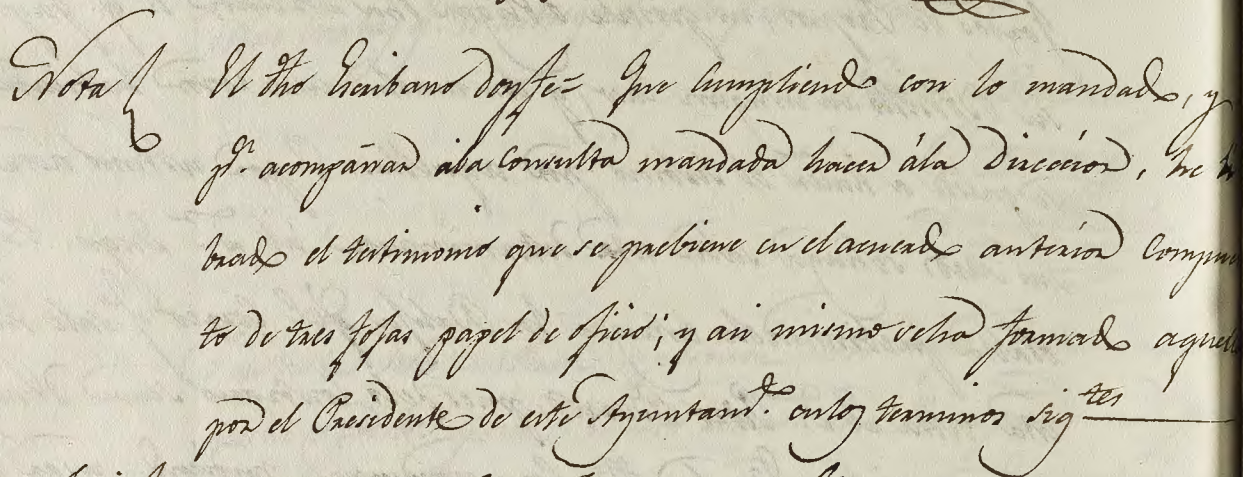 Nota El dho Escribano doy fe= Que Cumpliendo con lo mandado, y
pr. acompañar ala Consulta mandada hacer ála Direccion, he li
brado el testimonio que se prebiene en el acuerdo anterior Compues
to de tres fojas papel de oficio; y asi mismo seha formado aquella
por el Presidente de este Ayuntamto. enlos terminos sigtes